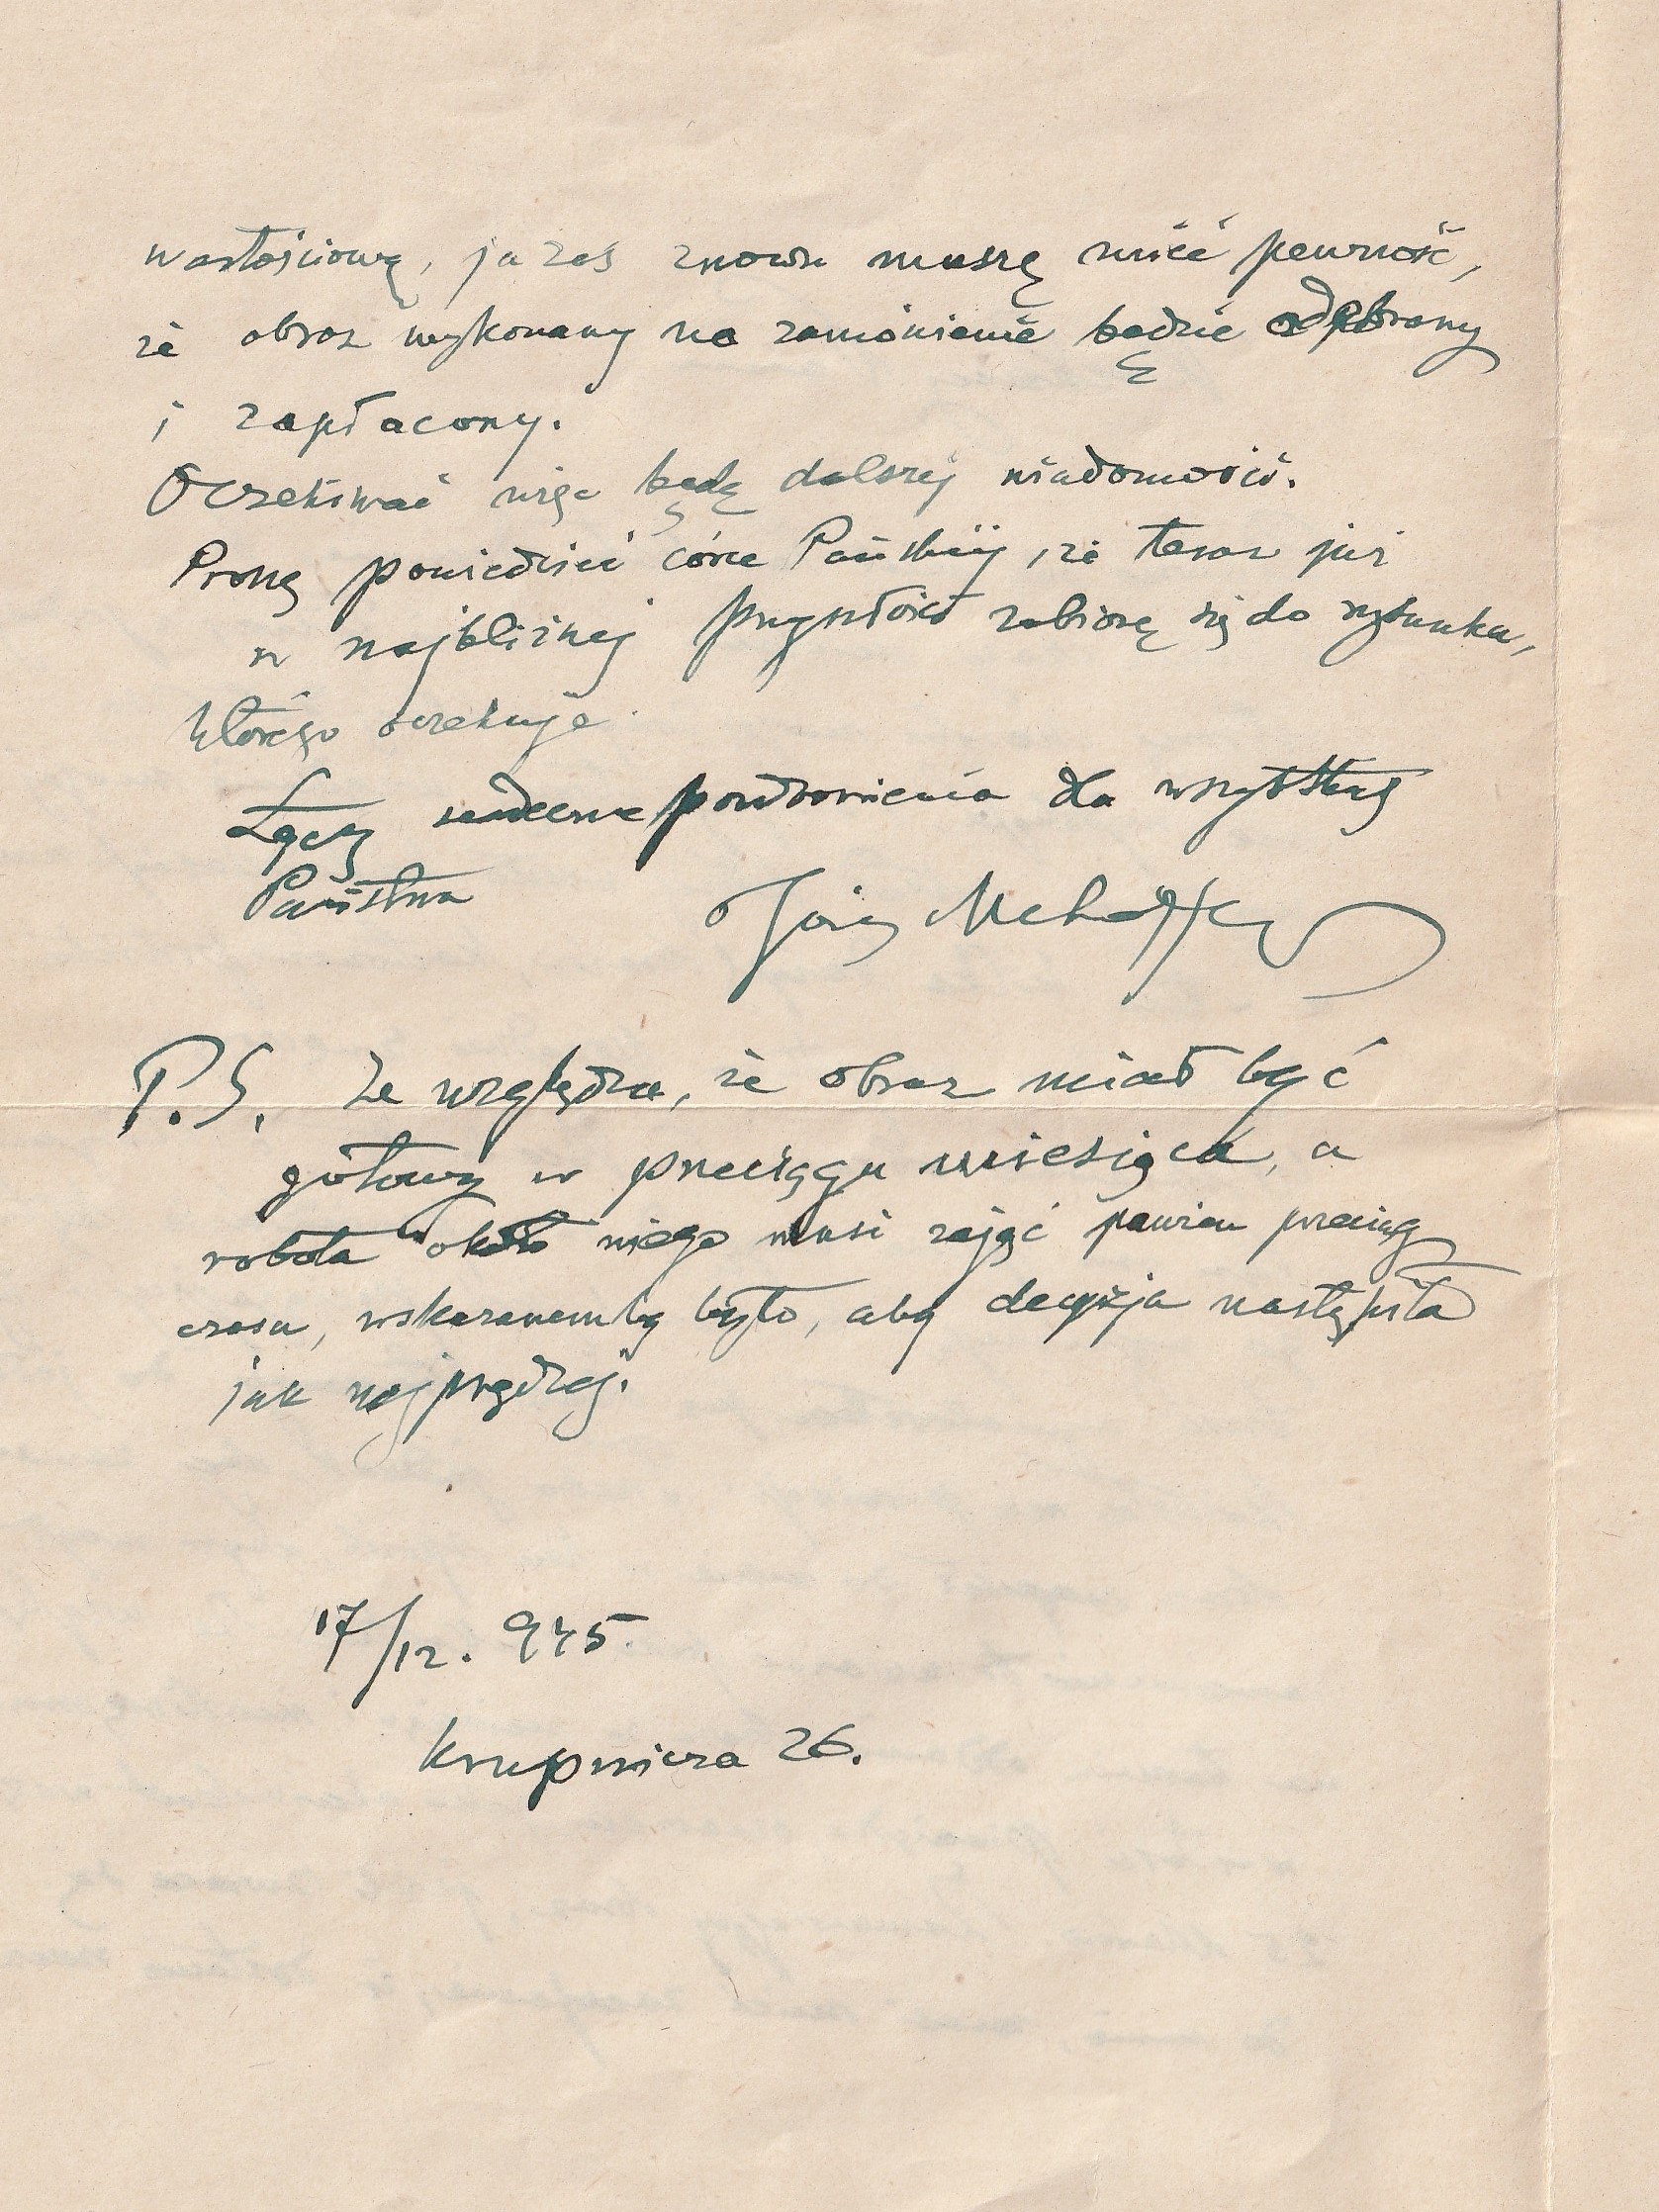 wartościową, ja zaś znowu muszę mieć pewność,
że obraz wykonany na zamówienie będzie odebrany
i zapłacony.
Oczekiwać więc będę dalszej wiadomości.
Proszę powiedzieć córce Pańskiej, że teraz już
w najbliższej przyszłości zabiorę się do rysunku,
którego oczekuje.
Łączę serdeczne pozdrowienia dla wszystkich
Państwa Józef Mehoffer
P.S. Ze względu, że obraz miał być
gotowy w przeciągu miesiąca, a
robota około niego musi zająć pewien przeciąg
czasu, wskazanem by było, aby decyzja nastąpiła
jak najprędzej.
17/12. 945
Krupnicza 26.